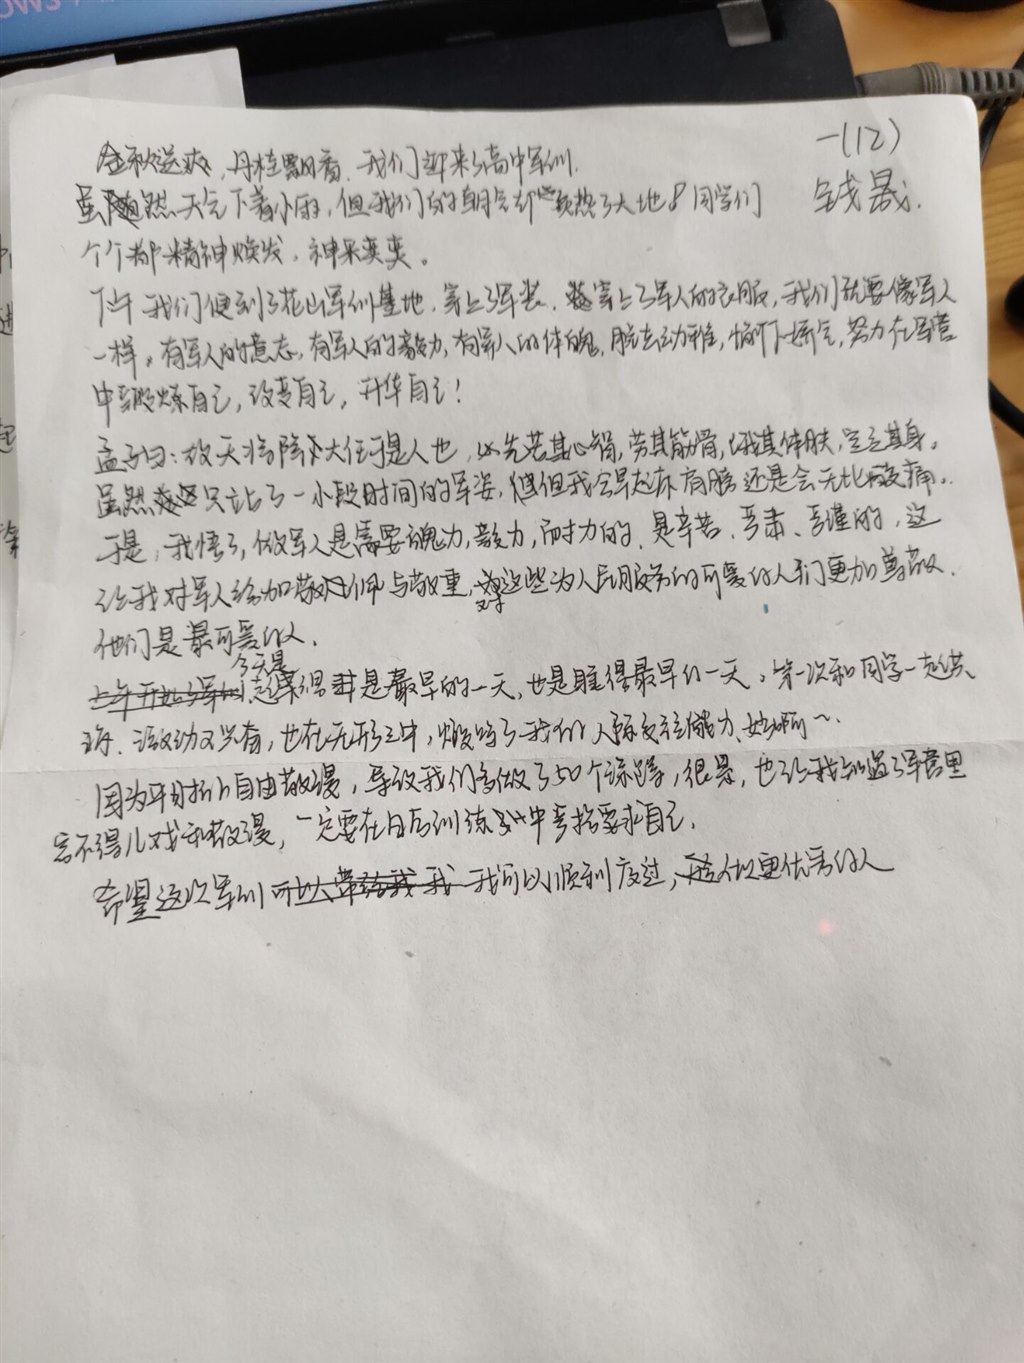 一(12)
钱晟.
金秋送爽,丹桂飘香.我们迎来了高中军训.
虽然天气下着小雨,但我们的朝气却燃热了大地!同学们
个个都精神焕发,神采奕奕。
下午我们便到了花山军训基地.穿上了军装.穿上了军人的衣服,我们就要像军人
一样。有军人的意志,有军人的毅力,有军人的体魄,脱去幼稚,惭下娇气,努力在军营
中锻炼自己,改变自己,升华自己!
孟子曰:故天将降大任于是人也,必先苦其心智,劳其筋骨,饿其体肤,空乏其身。
虽然只站了一小段时间的军姿,但我今早起床肩膀还是会无比酸痛。
于是,我悟了,做军人是需要魄力,毅力,耐力的.是辛苦、严肃、严谨的,这
让我对军人给加敬佩与敬重,对这些为人民服务的可爱的人们更加尊敬.
他们是最可爱的人.
今天是起得最早的一天,也是睡得最早的一天。第一次和同学一起
激动又兴奋,也在无形之中,锻炼了我们的人际交往能力、妙啊~.
因为平时的自由散漫,导致我们多做了50个深蹲,很累,也让我知道了军营里
容不得儿戏和散漫,一定要在日后训练中严格要求自己.
希望这次军训我可以顺利度过,更优秀的人